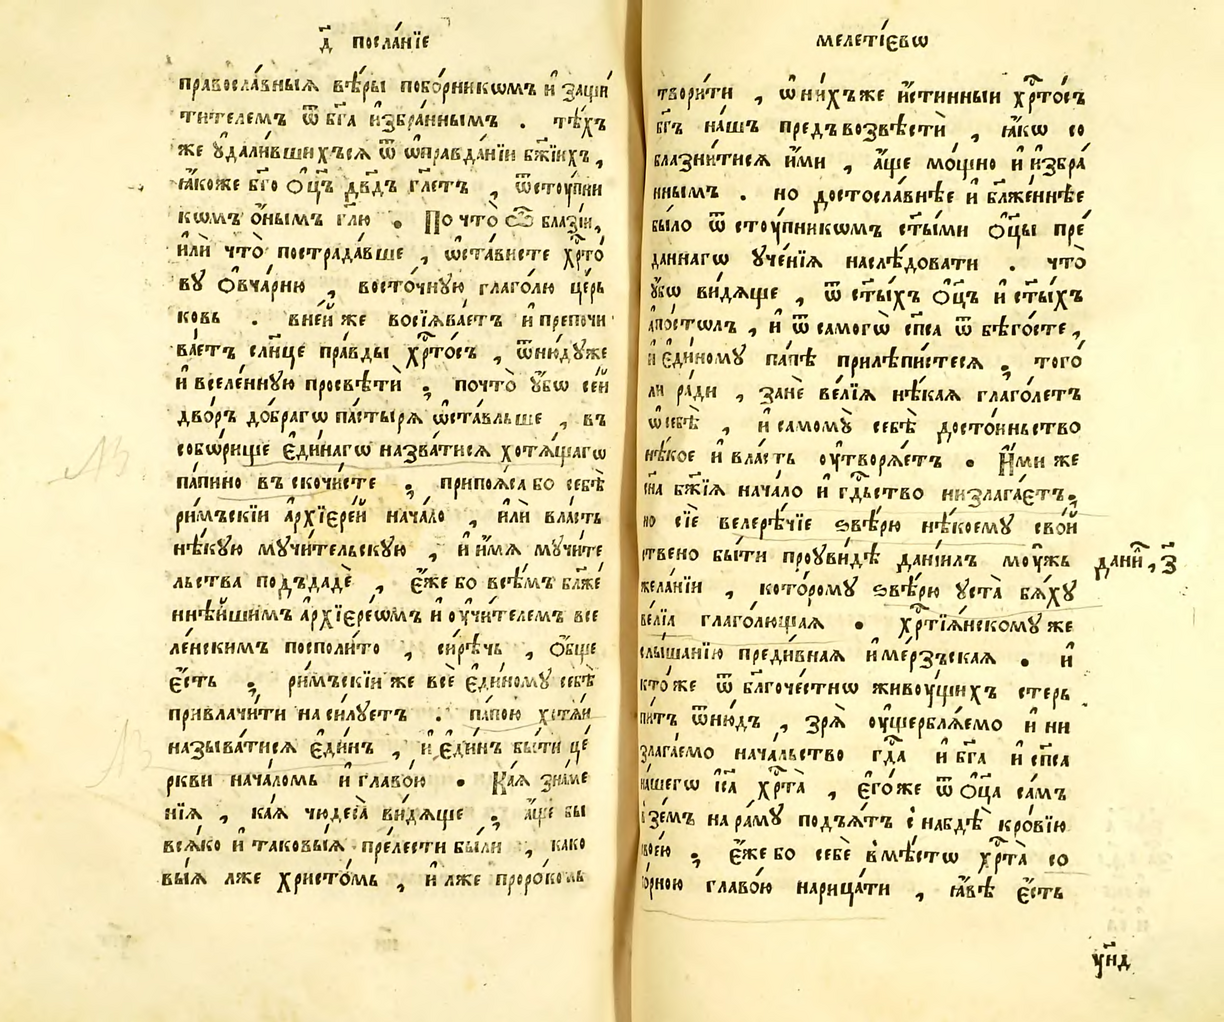 д҃ посла́нїе
правосла́вныѧ вѣ́ры побо́рникѡмъ и҆ защи́
тителемъ ѿ бг҃а и҆збра́ннымъ . тѣ́хъ
же ᲂу҆дали́вшихъсѧ ѿ ѡ҆правда́нїи бж҃їихъ ,
ꙗ҆́коже бг҃о ѻ҆ц҃ъ дв҃дъ гл҃етъ , ѿстоу́пни
кѡмъ ѻ҆́нымъ гл҃ю . По что̀ соблазни ,
и҆лѝ что̀ пострада́вше , ѡ҆ста́висте хрⷭ҇то́
ву ѻ҆вча́рню , восто́чную глаго́лю цр҃ь
ковь . вне́й же восїѧва́етъ и҆ препочи
ва́етъ сл҃нце пра́вды хрⷭ҇то́съ , ѿню́дуже
и҆ вселе́нную просвѣтѝ ; почто̀ ᲂу҆́бѡ се́й
дво́ръ до́брагѡ па́стырѧ ѡ҆ста́вльше , въ
собо́рище є҆ди́нагѡ назва́тисѧ хотѧ́щагѡ
па́пино въ скочи́сте ; припоѧ́са бо себѣ̀
ри́мъскїи а҆рхїере́й нача́ло , и҆лѝ вла́сть
нѣ́кую мучи́тельскую , и҆ и҆́мѧ мучи́те
льства подъдадѐ , є҆́же бо всѣ́мъ бл҃же́
ннѣ́йшимъ а҆рхїере́ѡмъ и҆ оучи́телемъ все
ле́нскимъ поспо́лито , си́рѣчь , ѻ҆́бще
є҆́сть ; ри́мъскїи же всѐ є҆ди́ному себѣ̀
привлачи́ти наси́луетъ . па́пою хотѧ́и
называ́тисѧ є҆ди́нъ , и҆ є҆ди́нъ бы́ти це́
ркви нача́ломъ и҆ главо́ю . Ка́ѧ зна́ме
нїѧ , ка́ѧ чюдеса̀ ви́дѧще ; а҆́ще бы
всѧ́ко и҆ таковы́ѧ пре́лести бы́ли , како
вы́ѧ лже христо́мъ , и҆ лже проро́комъ
мелетїевѡ
твори́ти , ѡ҆ ни́хъже и҆́стинныи хрⷭ҇то́съ
бг҃ъ на́шъ предъвозвѣстѝ , ꙗ҆́кѡ со
блазни́тисѧ и҆́ми , а҆́ще мо́щно и҆ и҆збра́
ннымъ . но досто́славнѣе и҆ бл҃же́ннѣе
бы́ло ѿстоу́пникѡмъ ст҃ы́ми ѻ҆ц҃ы пре́
даннагѡ ᲂу҆че́нїѧ наслѣ́довати . что̀
ᲂу҆́бѡ ви́дѧще , ѿ ст҃ы́хъ ѻ҆ц҃ъ и҆ ст҃ы́хъ
а҆по́столъ , и҆ ѿ самогѡ̀ сп҃са ѿ бѣго́сте ,
и҆ є҆ди́ному па́пѣ прилѣпи́стесѧ ; того̀
ли ра́ди , занѐ ве́лїѧ нѣ́каѧ глаго́летъ
ѡ҆ себѣ̀ , и҆ самому̀ себѣ̀ досто́иньство
нѣ́кое и҆ вла́сть оутворѧ́етъ . И҆́ми же
сн҃а бж҃їѧ нача́ло и҆ гдⷭ҇ьство низлага́етъ ;
но сїѐ велерѣ́чїе ѕвѣ́рю нѣ́коему сво́й
ствено бы́ти проуви́дѣ данїи́лъ моу́жь
дани҃ , з҃
жела́нїи , кото́рому ѕвѣ́рю ᲂу҆ста̀ бѧ́ху
ве́лїа глаго́лющаѧ . хрⷭ҇тїѧ́нскому же
слы́шанїю преди́внаѧ и҆ ме́рзъскаѧ . и҆
кто́же ѿ благоче́стнѡ живоу́щихъ стерь
питъ ѿню́дъ , зрѧ̀ оу҆щерблѧ́емо и҆ ни
злага́емо нача́льство гдⷭ҇а и҆ бг҃а и҆ сп҃са
на́шегѡ і҆с҃а хрⷭ҇та̀ , є҆го́же ѿ ѻ҆ц҃а са́мъ
взе́мъ на ра́му подъѧ́тъ и҆ снабдѣ̀ кро́вїю
свое́ю ; є҆́же бо себѐ вмѣ́стѡ хрⷭ҇та̀ со
бо́рною главо́ю нарица́ти , ꙗ҆́вѣ є҆́сть
ун҃д